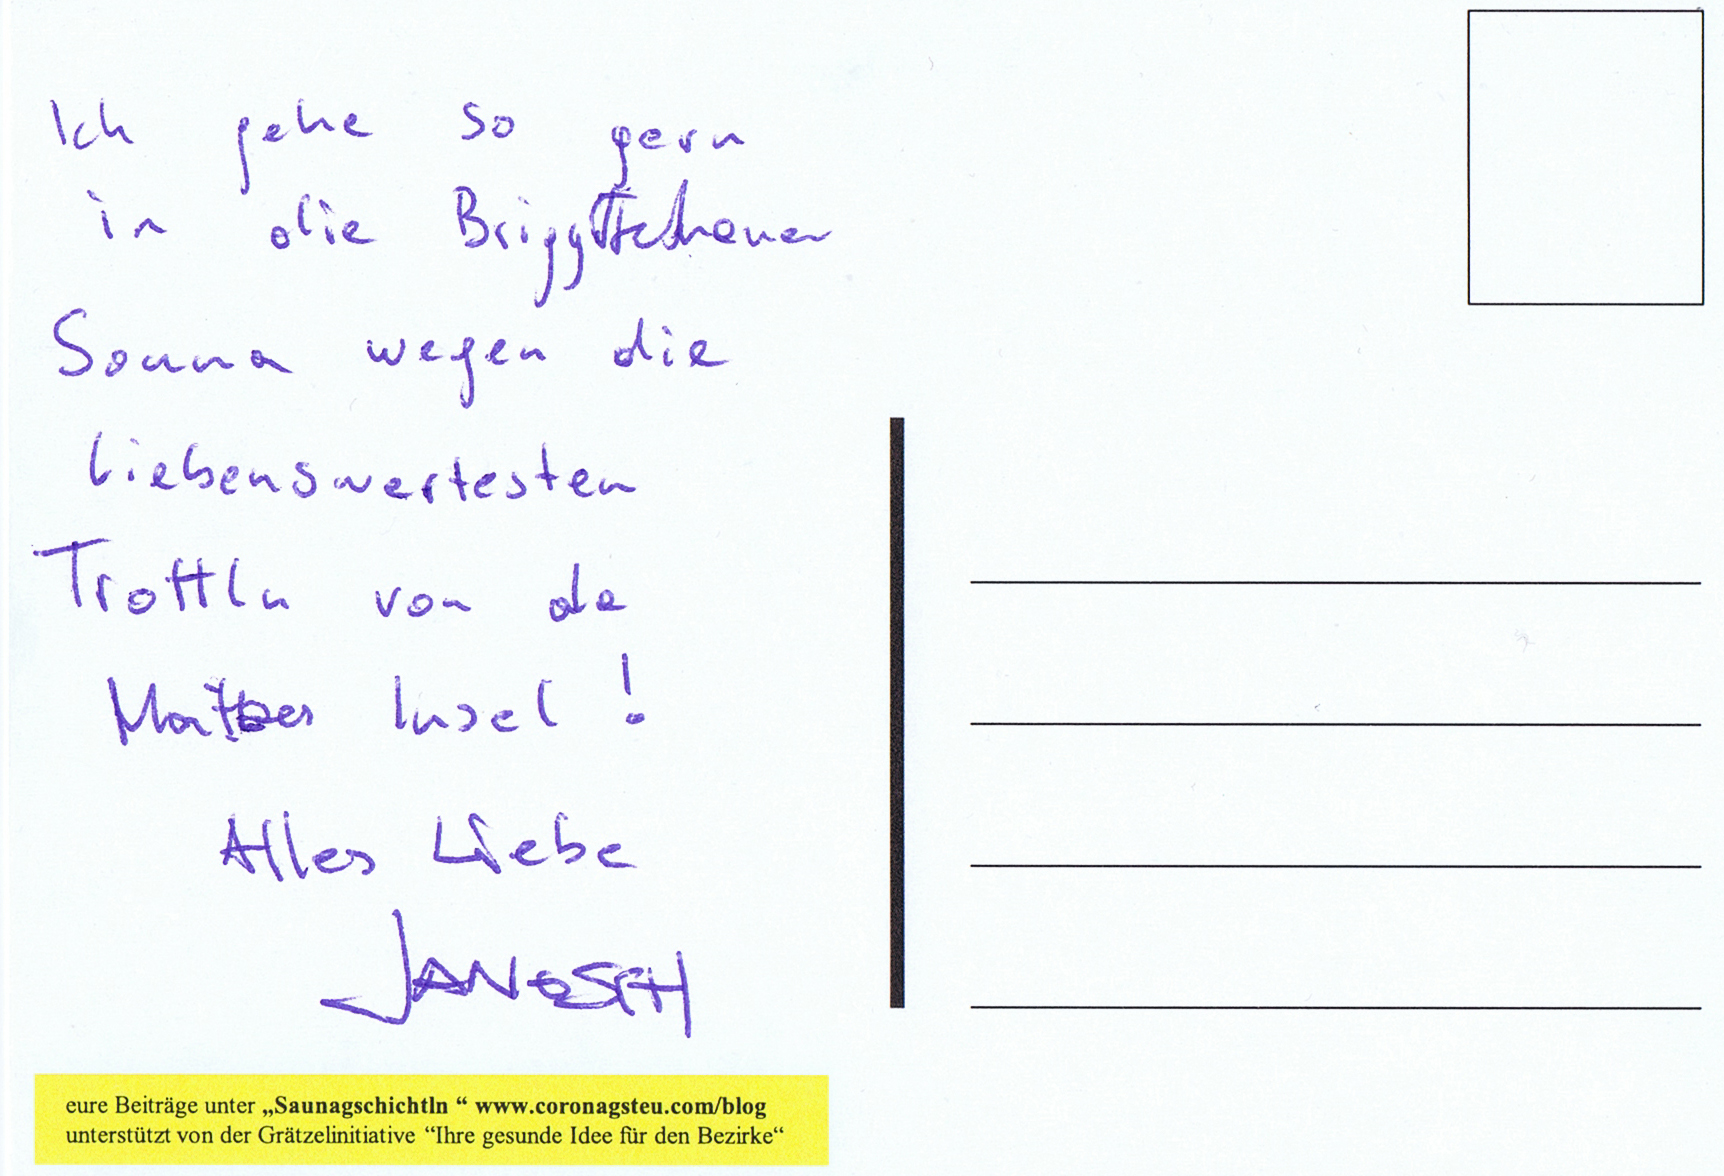 Ich gehe so gern
in die
Sauna wegen die
liebenswertesten
Trottln von da
Insel !
Alles Liebe
JANOSCH
eure Beiträge unter „Saunagschichtln “ www.coronagsteu.com/blog
unterstützt von der Grätzelinitiative “Ihre gesunde Idee für den Bezirke“